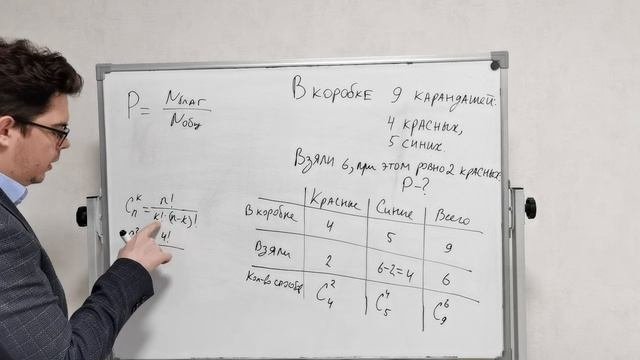 P = Nблаг / Nобщ
В коробке 9 карандашей:
4 красных,
5 синих
Взяли 6, при этом ровно 2 красных
P-?
C_n^k = n! / k!·(n-k)!
4!
Красные Синие Всего
В коробке 4 5 9
Взяли 2 6-2=4 6
Кол-во способов C_4^2 C_5^4 C_9^6